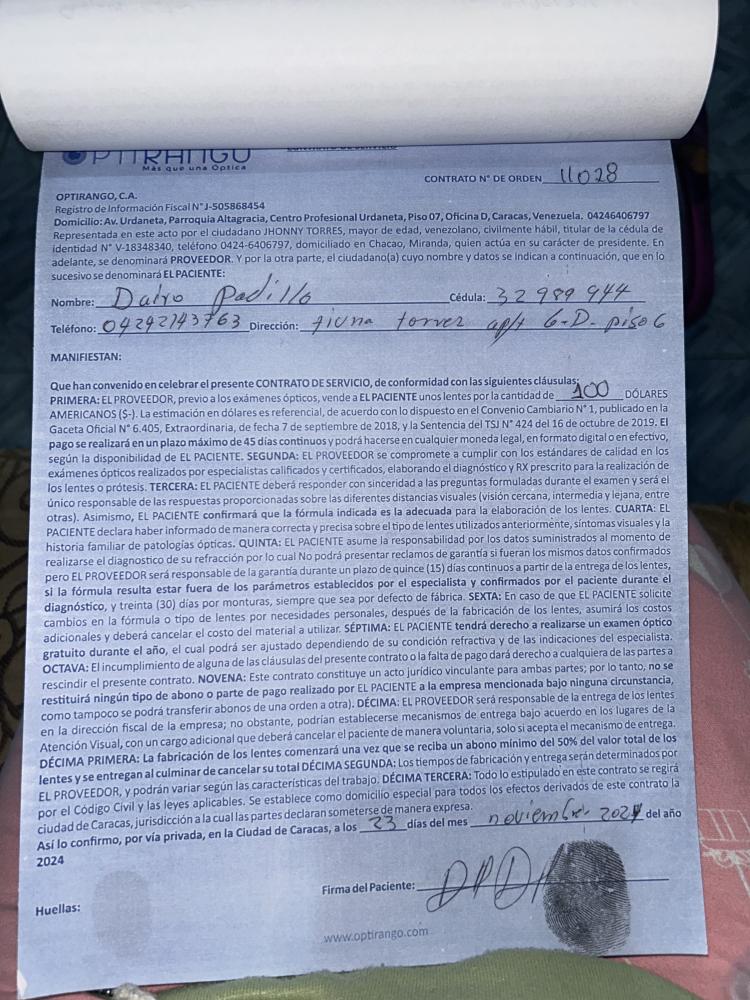 OPTIRANGO
Más que una Óptica
CONTRATO N° DE ORDEN 11028
OPTIRANGO, C.A.
Registro de Información Fiscal N°J-505868454
Domicilio: Av. Urdaneta, Parroquia Altagracia, Centro Profesional Urdaneta, Piso 07, Oficina D, Caracas, Venezuela. 04246406797
Representada en este acto por el ciudadano JHONNY TORRES, mayor de edad, venezolano, civilmente hábil, titular de la cédula de
identidad N° V-18348340, teléfono 0424-6406797, domiciliado en Chacao, Miranda, quien actúa en su carácter de presidente. En
adelante, se denominará PROVEEDOR. Y por la otra parte, el ciudadano(a) cuyo nombre y datos se indican a continuación, que en lo
sucesivo se denominará EL PACIENTE:
Nombre: Dairo Padillo Cédula: 32989944
Teléfono: 04242143763 Dirección: tiuna torres apt 6-D- piso 6
MANIFIESTAN:
Que han convenido en celebrar el presente CONTRATO DE SERVICIO, de conformidad con las siguientes cláusulas:
PRIMERA: EL PROVEEDOR, previo a los exámenes ópticos, vende a EL PACIENTE unos lentes por la cantidad de 100 DÓLARES
AMERICANOS ($-). La estimación en dólares es referencial, de acuerdo con lo dispuesto en el Convenio Cambiario N° 1, publicado en la
Gaceta Oficial N° 6.405, Extraordinaria, de fecha 7 de septiembre de 2018, y la Sentencia del TSJ N° 424 del 16 de octubre de 2019. El
pago se realizará en un plazo máximo de 45 días continuos y podrá hacerse en cualquier moneda legal, en formato digital o en efectivo,
según la disponibilidad de EL PACIENTE. SEGUNDA: EL PROVEEDOR se compromete a cumplir con los estándares de calidad en los
exámenes ópticos realizados por especialistas calificados y certificados, elaborando el diagnóstico y RX prescrito para la realización de
los lentes o prótesis. TERCERA: EL PACIENTE deberá responder con sinceridad a las preguntas formuladas durante el examen y será el
único responsable de las respuestas proporcionadas sobre las diferentes distancias visuales (visión cercana, intermedia y lejana, entre
otras). Asimismo, EL PACIENTE confirmará que la fórmula indicada es la adecuada para la elaboración de los lentes. CUARTA: EL
PACIENTE declara haber informado de manera correcta y precisa sobre el tipo de lentes utilizados anteriormente, síntomas visuales y la
historia familiar de patologías ópticas. QUINTA: EL PACIENTE asume la responsabilidad por los datos suministrados al momento de
realizarse el diagnostico de su refracción por lo cual No podrá presentar reclamos de garantía si fueran los mismos datos confirmados
pero EL PROVEEDOR será responsable de la garantía durante un plazo de quince (15) días continuos a partir de la entrega de los lentes,
si la fórmula resulta estar fuera de los parámetros establecidos por el especialista y confirmados por el paciente durante el
diagnóstico, y treinta (30) días por monturas, siempre que sea por defecto de fábrica. SEXTA: En caso de que EL PACIENTE solicite
cambios en la fórmula o tipo de lentes por necesidades personales, después de la fabricación de los lentes, asumirá los costos
adicionales y deberá cancelar el costo del material a utilizar. SÉPTIMA: EL PACIENTE tendrá derecho a realizarse un examen óptico
gratuito durante el año, el cual podrá ser ajustado dependiendo de su condición refractiva y de las indicaciones del especialista.
OCTAVA: El incumplimiento de alguna de las cláusulas del presente contrato o la falta de pago dará derecho a cualquiera de las partes a
rescindir el presente contrato. NOVENA: Este contrato constituye un acto jurídico vinculante para ambas partes; por lo tanto, no se
restituirá ningún tipo de abono o parte de pago realizado por EL PACIENTE a la empresa mencionada bajo ninguna circunstancia,
como tampoco se podrá transferir abonos de una orden a otra). DÉCIMA: EL PROVEEDOR será responsable de la entrega de los lentes
en la dirección fiscal de la empresa; no obstante, podrían establecerse mecanismos de entrega bajo acuerdo en los lugares de la
Atención Visual, con un cargo adicional que deberá cancelar el paciente de manera voluntaria, solo si acepta el mecanismo de entrega.
DÉCIMA PRIMERA: La fabricación de los lentes comenzará una vez que se reciba un abono mínimo del 50% del valor total de los
lentes y se entregan al culminar de cancelar su total DÉCIMA SEGUNDA: Los tiempos de fabricación y entrega serán determinados por
EL PROVEEDOR, y podrán variar según las características del trabajo. DÉCIMA TERCERA: Todo lo estipulado en este contrato se regirá
por el Código Civil y las leyes aplicables. Se establece como domicilio especial para todos los efectos derivados de este contrato la
ciudad de Caracas, jurisdicción a la cual las partes declaran someterse de manera expresa.
Así lo confirmo, por vía privada, en la Ciudad de Caracas, a los 23 días del mes noviembre 2024 del año
2024
Firma del Paciente:
Huellas:
www.optirango.com